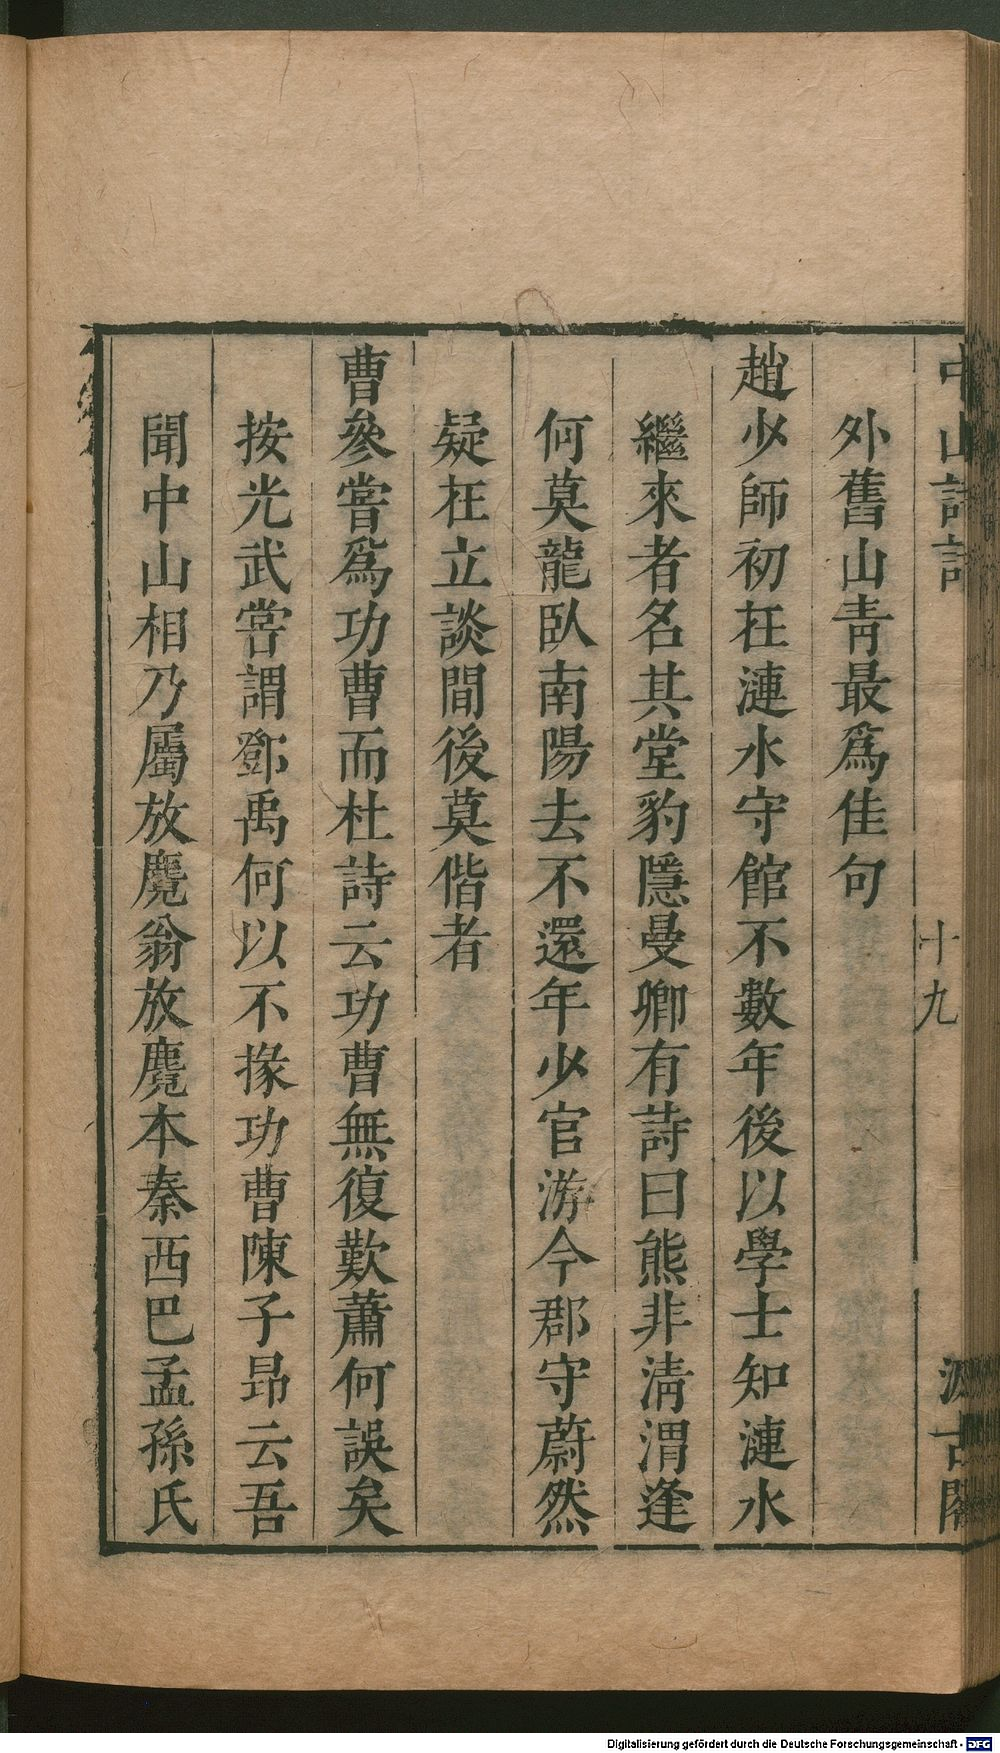 中山詩話
十九
汲古閣
外舊山青最爲佳句
趙少師初在漣水守館不數年後以學士知漣水
繼來者名其堂豹隱曼卿有詩曰熊非清渭逢
何莫龍臥南陽去不還年少官游今郡守蔚然
疑在立談間後莫偕者
曹參嘗爲功曹而杜詩云功曹無復歎蕭何誤矣
按光武嘗謂鄧禹何以不掾功曹陳子昂云吾
聞中山相乃屬放麑翁放麑本秦西巴孟孫氏
Digitalisierung gefördert durch die Deutsche Forschungsgemeinschaft - DFG